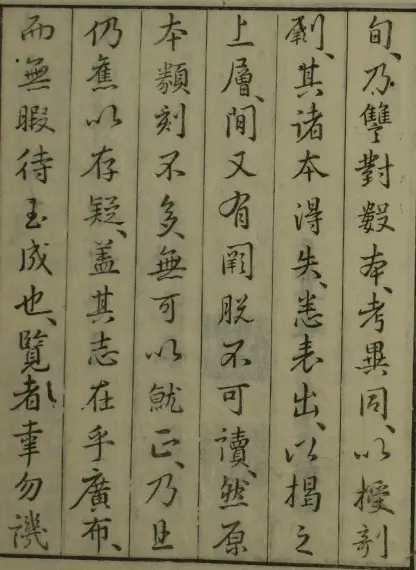 旬、乃讐對數本、考異同、以授剞
劂、其諸本得失、悉表出、以揭之
上層、間又有闕脫不可讀、然原
本類刻不多、無可以就正、乃且
仍舊以存疑、蓋其志在乎廣布、
而無暇待玉成也、覽者幸勿譏